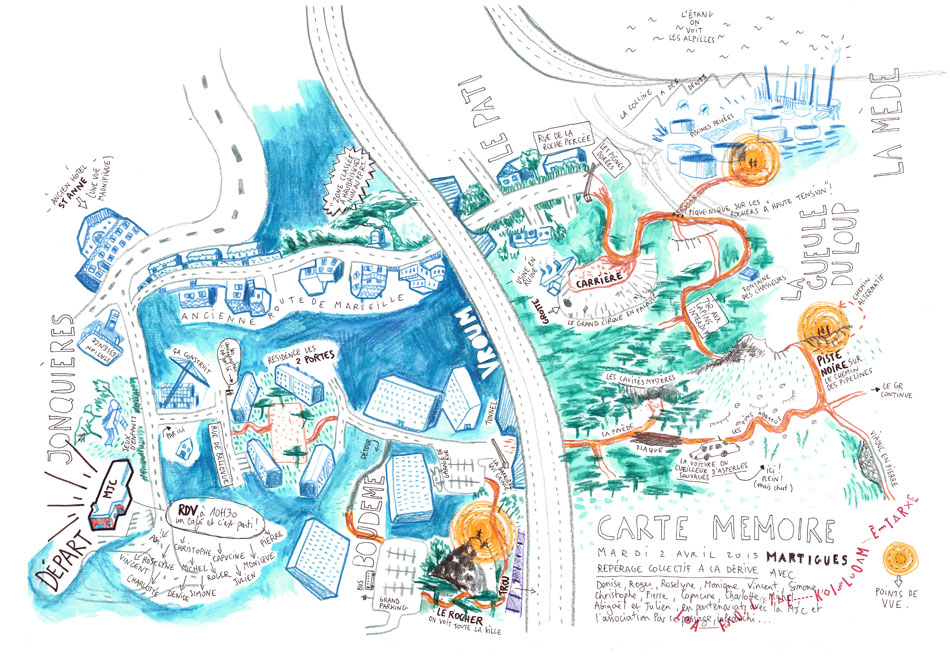 L'ÉTANG
ON
VOIT
LES ALPILLES
LA COLLINE A DES DENTS
PISCINES PRIVÉES
LA MÈDE
LE PATI
RUE DE LA
ROCHE PERCÉE
LES PIGNES
DORÉES
ZONE CLASSÉE
ANCIEN HÔTEL
ST ANNE
(UNE VUE
MAGNIFIQUE)
PIQUE-NIQUE SUR LES
ROCHERS À HAUTE TENSION!
LA
GUEULE
DU LOUP
CHEMIN
ALTERNATIF
FONTAINE
DES CHASSEURS
CARRIÈRE
LE GRAND CIRQUE EN
GROTTE
TIR AUX
LAPINS
INTERDIT
ANCIENNE ROUTE DE MARSEILLE
VROUM
JONQUIÈRES
STATION
ESSENCE
ÇA CONSTRUIT
RÉSIDENCE LES
2 PORTES
PISTE
NOIRE SUR
LE CHEMIN
DES PIPELINES
LE GR
CONTINUE
LES CAVITÉS MYSTÈRES
LA PINÈDE
PLAQUE
LA VOITURE DU
CUEILLEUR D'ASPERGES
SAUVAGES
ICI
PLEIN!
(mais chut)
VIADUC EN PIERRE
JEUX
D'ENFANTS
PAR ICI
RUE DE BELLEVUE
DÉTOUR
TUNNEL
MJC
DÉPART
RDV à 10H30
un café et c'est parti!
PIERRE
CHRISTOPHE
ROSELYNE
MICHEL
CAPUCINE
MONIQUE
VINCENT
ROGER
JULIEN
CHARLOTTE
DENISE
SIMONE
BOUDÈME
BUS
GRAND
PARKING
LE ROCHER
ON VOIT TOUTE LA VILLE
TROU
CARTE MEMOIRE
MARDI 2 AVRIL 2013 MARTIGUES
REPÉRAGE COLLECTIF A LA DÉRIVE AVEC
Denise, Roger, Roselyne, Monique, Vincent, Simone,
Christophe, Pierre, Capucine, Charlotte, Michel,
Abigaël et Julien, en partenariat avec la MJC et
l'association Par ce passage, infranchi...
POINTS DE
VUE.